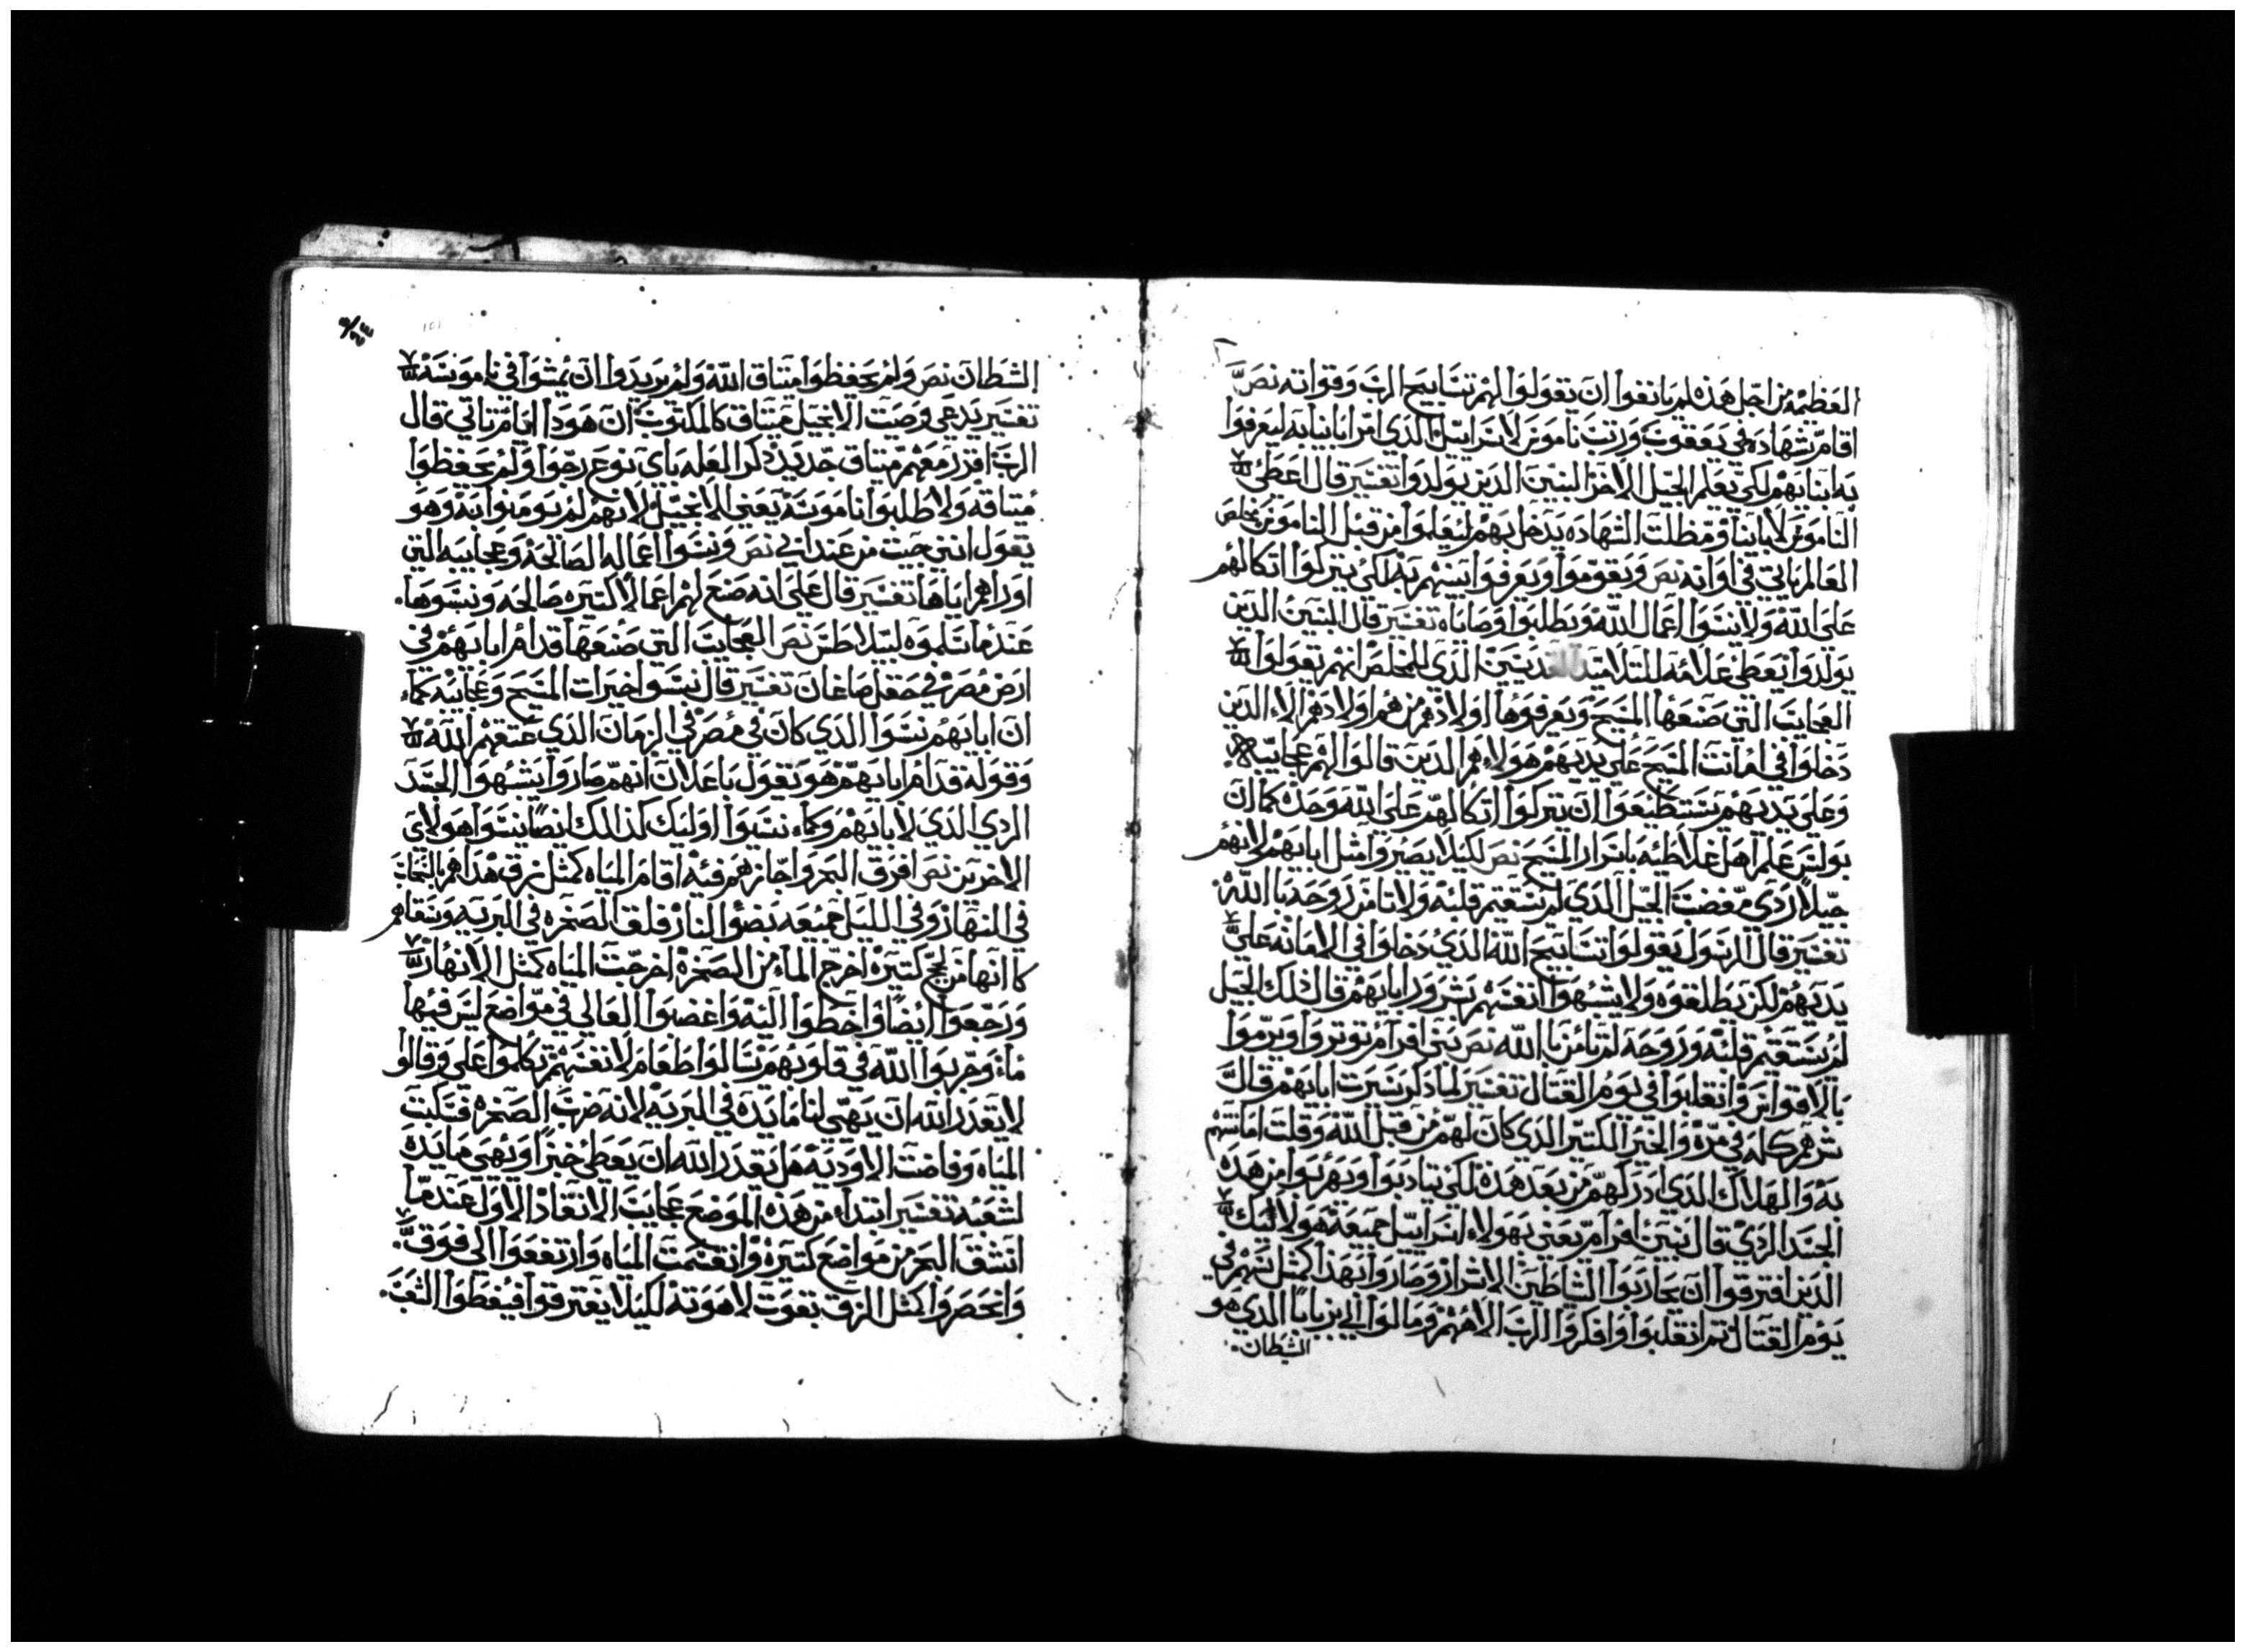 العظيمه من اجل هذه لم يانفوا ان تقولوا لهم تسابيح الرب وقواته نص
اقام شهاده في يعقوب ورتب ناموس لاسراييل الذي امر ابانا به ليعرفوا
به ابنايهم لكي يعلم الجيل الاخر البنين الدين يولدوا تفسير قال اعطي
الناموس لابانيا ومظلت الشهاده يدخل بهم ليعلموا من قبل الناموس مخلص
العالم ياتي في اوانه نص ويقوموا ويعرفوا بنيهم به لكي يتركوا اتكالهم
على الله ولا ينسوا اعمال الله ويطلبوا وصاياه تفسير قال البنين الدين
يولدوا يعطي علامه للتلاميد القديسين الذي للمخلص انهم يقولوا
العجايب التي صنعها المسيح ويعرفوها اولادهم من هم اولادهم الاء الدين
دخلوا في امانت المسيح على يديهم هولاء هم الدين قالوا لهم عجايبه
وعلى يديهم يستطيعوا ان يتركوا اتكالهم على الله وحده كما ان
بولس علم اهل غلاطيه باسرار المسيح نص لكيلا يصيروا مثل ابايهم لانهم
جيلا ردي مغضب الجيل الدي لم يستقيم قلبه ولا تامن روحه بالله
تفسير قال الرسول يقولوا تسابيح الله الدي دخلوا في الامانه على
يديهم لكن يطلقوه ولا يشبهوا انفسهم بشرور ابايهم قال ذلك الجيل
لم يستقيم قلبه وروحه لم تامن بالله نص بني افرام توتروا ويرموا
بالاقواس وانقلبوا في يوم القتال تفسير لما ذكر سيرت ابايهم قال
شرهم كله في مره والخير الكتير الدي كان لهم من قبل الله وقلت امانتهم
به والهلاك الدي ادركهم من بعد هذه لكي يتادبوا ويهربوا من هده
الجند الردي قال بنين افرام يعني بهولاء اسراييل جميعه هولاليك
الدين افترقوا ان يحاربوا الشاطين الاشرار وصاروا بهدا كمثل سهم في
يوم القتال تم انقلبوا وافكروا الرب الاههم ومالوا الي بريابا الدي هو
الشطان
الشطان نص ولم يحفظوا متياق الله ولم يريدوا ان يمشوا في ناموسه
تفسير يدعي وصيت الانجيل ميتاق كالمكتوب ان هودا ايام تاتي قال
الرب اقرر معهم ميتاق جديد دكر العله باي نوع رجوا ولم يحفظوا
ميتاقه ولا طلبوا ناموسه يعني الانجيل لانهم لم يومنوا به وهو
يقول انني جيت من عند ابي نص ونسوا اعماله الصالحه وعجايبه التي
اوراهم اياها تفسير قال على انه صنع لهم اعمالا كتيره صالحه ونسوها
عندما سلموه لبيلاطس نص العجايب التي صنعها قدام ابايهم في
ارض مصر في حقل صاغان تفسير قال نسوا خيرات المسيح وعجايبه كماء
ان ابايهم نسوا الدي كان في مصر في الزمان الدي عتقهم الله
وقوله قدام ابايهم هو يقول باعلان انهم صاروا يشبهوا الجند
الردي الدي لابايهم وكماء نسيوا اوليك كذلك ايضا نسوا هولاي
الاخرين نص افرق البحر واجازهم فيه اقام المياه كمثل زق هداهم بالسحاب
في النهار وفي الليل جميعه بضو النار فلق الصخره في البريه وسقاهم
كما انها من لجج كتيره اخرج الماء من الصخره اخرجت المياه كمثل الانهار
ورجعوا ايضا واخطوا اليه واغضبوا العالي في مواضع ليس فيها
ماء وجربوا الله في قلوبهم تسالوا طعام لانفسهم تكلموا على وقالو
لا يقدر الله ان يهيى لنا مايده في البريه لانه ضرب الصخره فسكبت
المياه وفاضت الاوديه هل يقدر الله ان يعطي خبزا ويهيى مايده
لشعبه تفسير ابتداء من هذه الموضع عجايب الانقاد الاول عندما
انشق البحر من مواضع كتيره وانقسمت المياه وارتفعوا الى فوق
وانحصروا كمثل الزق بقوت لاهوته لكيلا يفترقوا فيغطوا الشعب